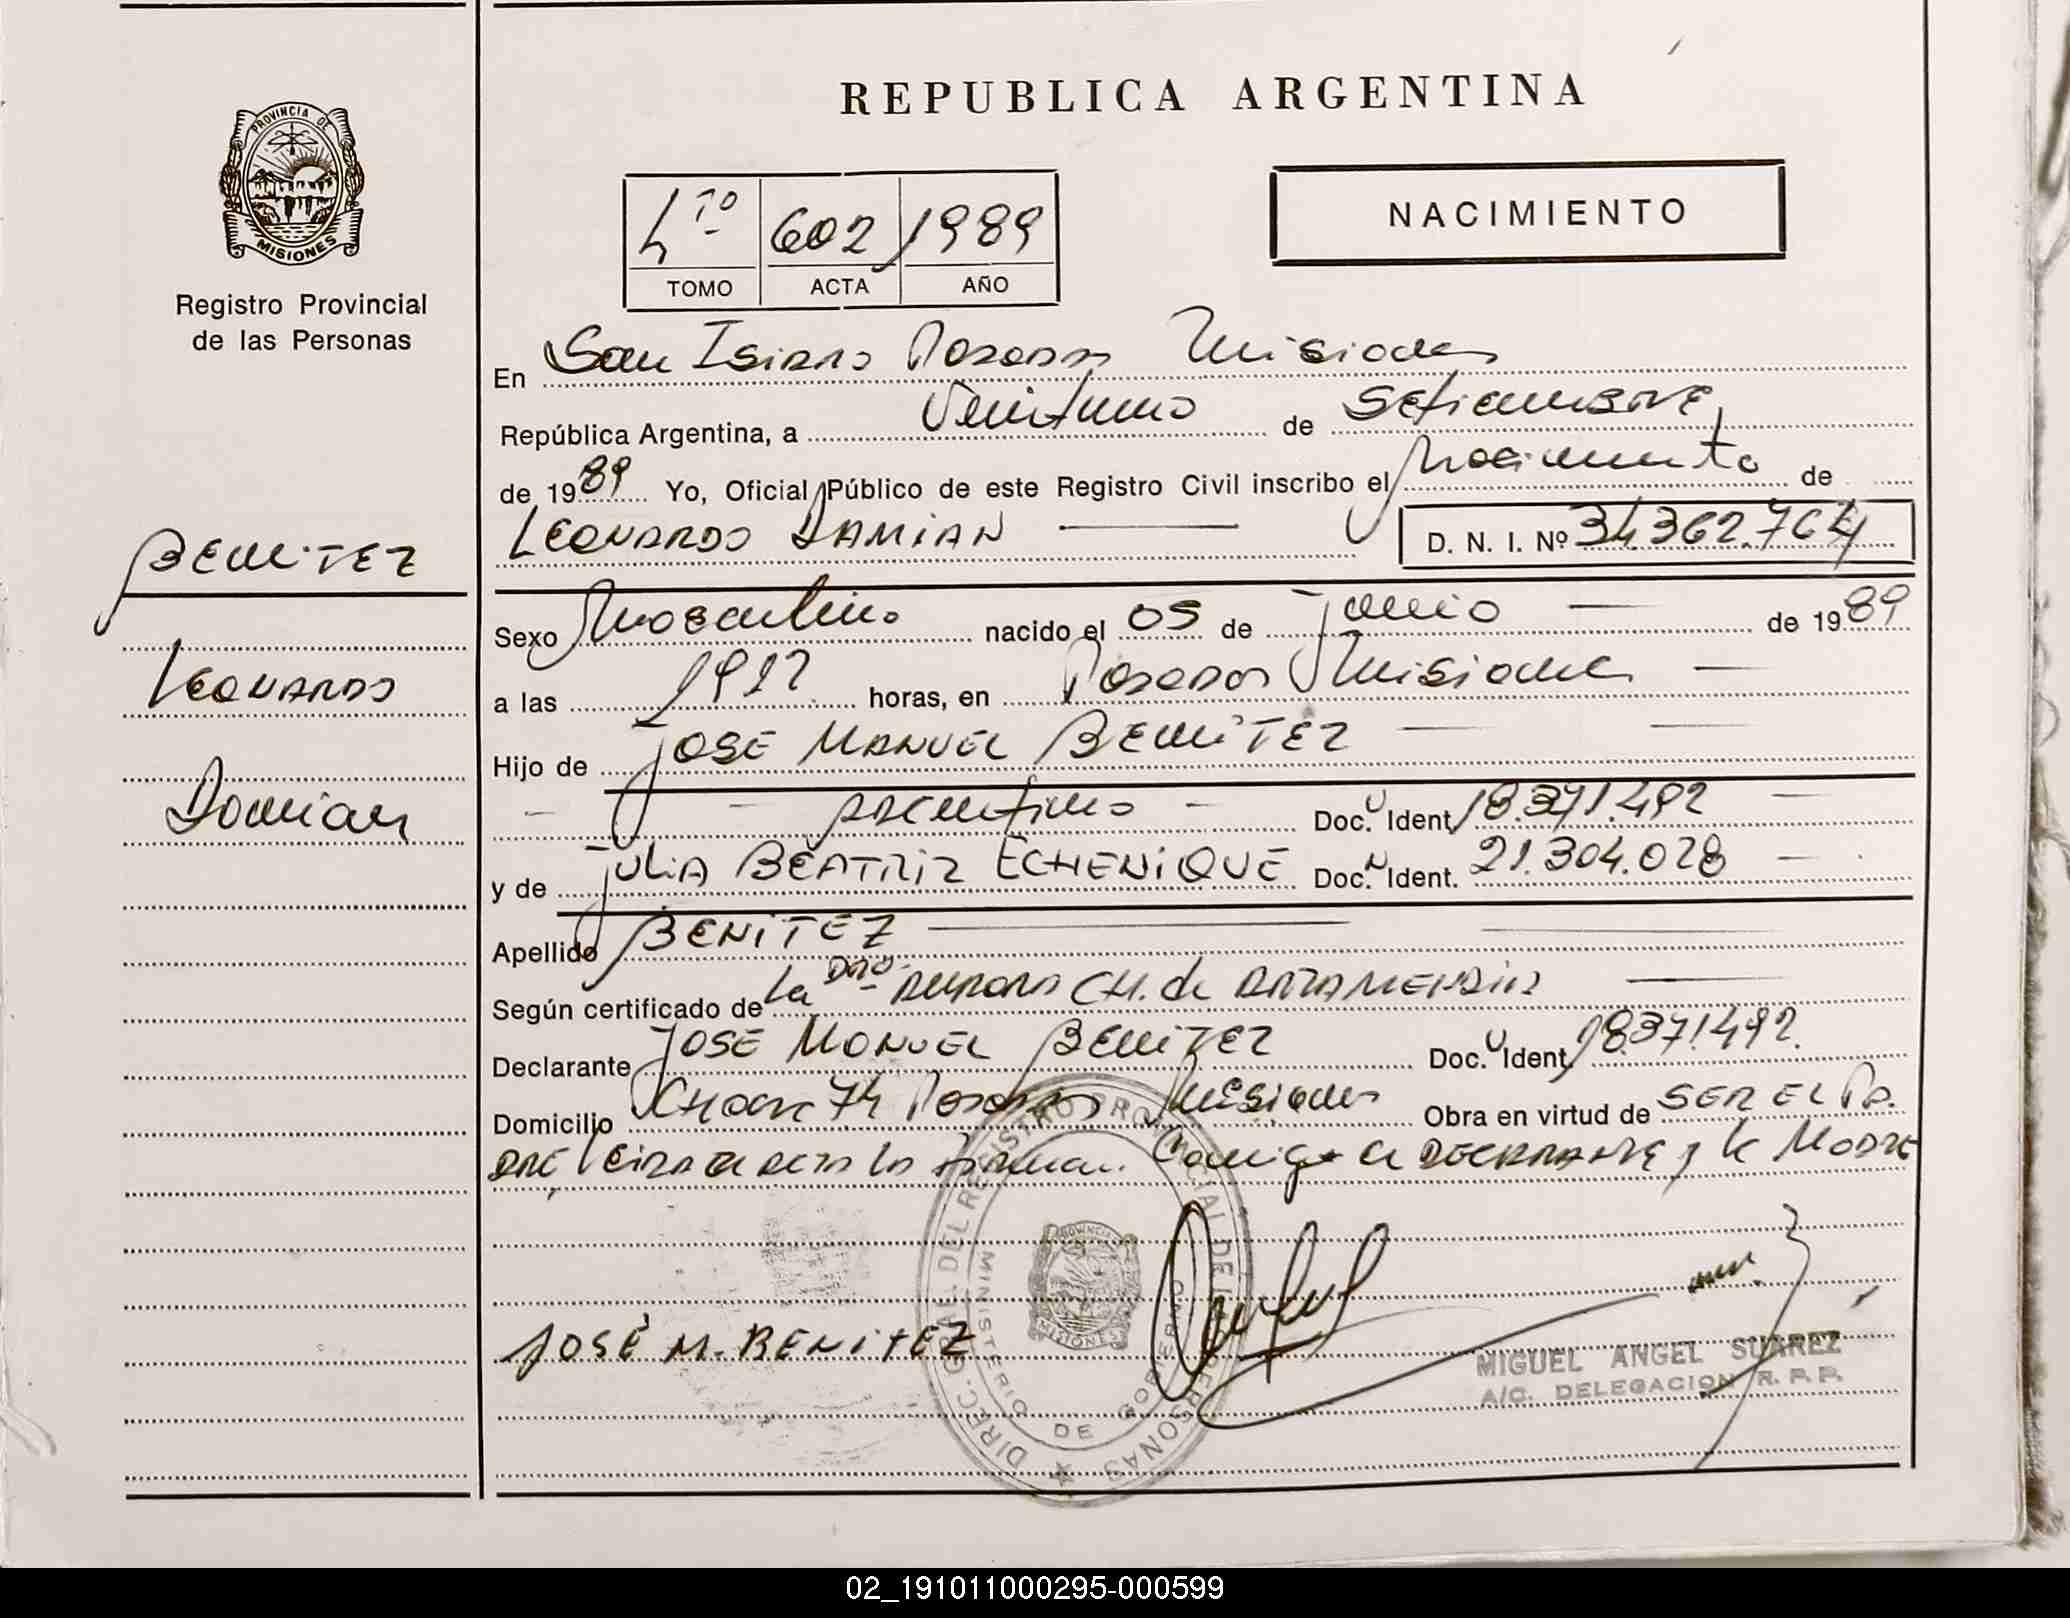 REPUBLICA ARGENTINA
PROVINCIA DE
MISIONES
Registro Provincial
de las Personas
4 TO 602 1989
TOMO ACTA AÑO
NACIMIENTO
En San Isidro Posadas Misiones
República Argentina, a Veintiuno de Setiembre
de 1989 Yo, Oficial Público de este Registro Civil inscribo el Nacimiento de
LEONARDO DAMIAN D. N. I. Nº 34.362.764
BENITEZ
Leonardo
Damian
Sexo Masculino nacido el 05 de Junio de 1989
a las horas, en Posadas Misiones
Hijo de JOSE MANUEL BENITEZ
argentino Doc. Ident. 18.371.492
y de JULIA BEATRIZ ECHENIQUE Doc. N Ident. 21.304.028
Apellido BENITEZ
Según certificado de La Dra. CH. de
Declarante JOSE MANUEL BENITEZ Doc. Ident. 18.371.492.
Domicilio 74 Posadas Misiones Obra en virtud de SER EL PA.
DRE la firman Conmigo el DECLARANTE y la MADRE
DIREC. GRAL. DEL REGISTRO PROVINCIAL DE LAS PERSONAS
MINISTERIO DE GOBIERNO
PROVINCIA
MISIONES
JOSÉ M. BENITEZ
MIGUEL ANGEL SUAREZ
A/C. DELEGACION R. P. P.
02_191011000295-000599